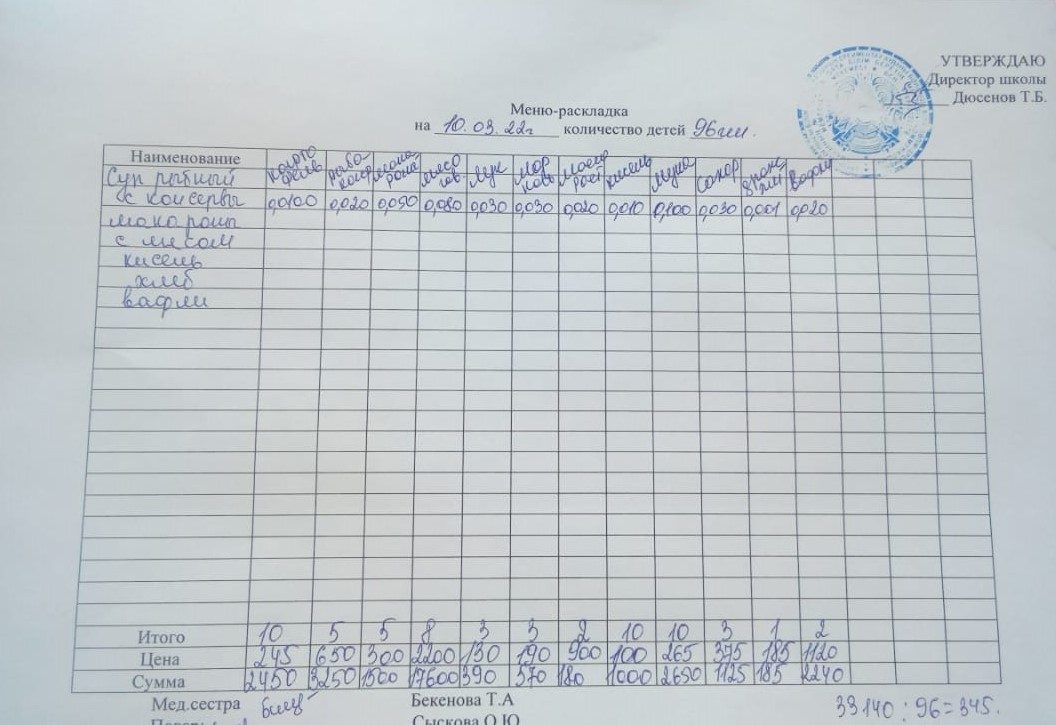 УТВЕРЖДАЮ
Директор школы
Дюсенов Т.Б.
Меню-раскладка
на 10.03.22г количество детей 96
Наименование картофель рыбо-конс макароны мясо лук морковь кисель мука сахар вафли
Суп рыбный
с консервы 0,0100 0,020 0,050 0,080 0,030 0,030 0,020 0,010 0,100 0,030 0,001 0,020
макароны
с мясом
кисель
хлеб
вафли
Итого 10 5 5 8 3 3 2 10 10 3 1 2
Цена 245 650 300 2200 130 190 900 100 265 375 185 1120
Сумма 2450 3250 1500 17600 390 570 180 1000 2650 1125 185 2240
Мед.сестра Бекенова Т.А
33140 : 96 = 345.
Сыскова О.Ю